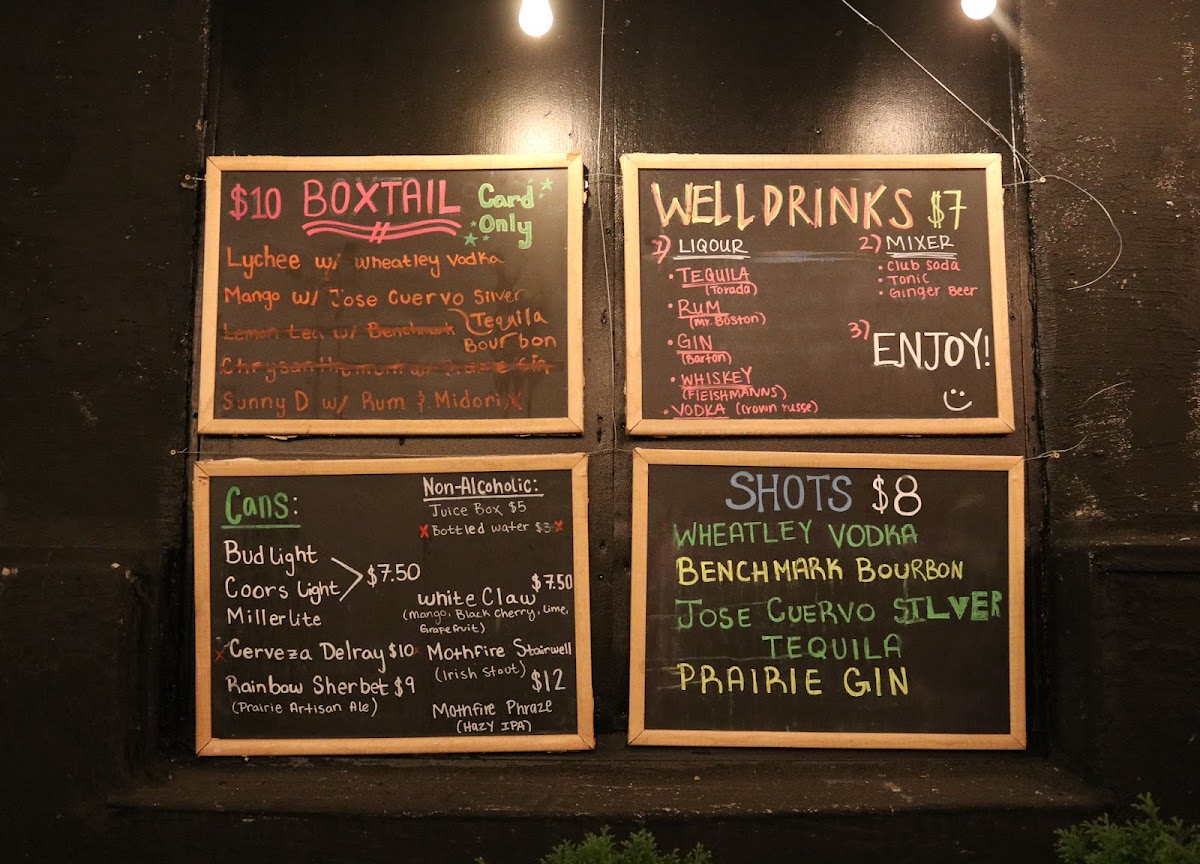 $10 BOXTAIL Card Only
Lychee w/ Wheatley Vodka
Mango w/ Jose Cuervo Silver
Tequila
Lemon tea w/ Benchmark
Bourbon
Chrysanthemum w/ Prairie Gin
Sunny D w/ Rum & Midori x
WELL DRINKS $7
1) LIQOUR
• TEQUILA
(Torada)
• RUM
(Mr. Boston)
• GIN
(Barton)
• WHISKEY
(FLEISHMANNS)
• VODKA (Crown russe)
2) MIXER
• Club Soda
• Tonic
• Ginger Beer
3) ENJOY!
Cans:
Bud Light
Coors Light
Millerlite
$7.50
Cerveza Delray $10
Rainbow Sherbet $9
(Prairie Artisan Ale)
Non-Alcoholic:
Juice Box $5
x Bottled water $3 x
$7.50
White Claw
(Mango, Black Cherry, Lime,
Grapefruit)
Mothfire Stairwell
(Irish Stout)
$12
Mothfire Phraze
(Hazy IPA)
SHOTS $8
WHEATLEY VODKA
BENCHMARK BOURBON
JOSE CUERVO SILVER
TEQUILA
PRAIRIE GIN